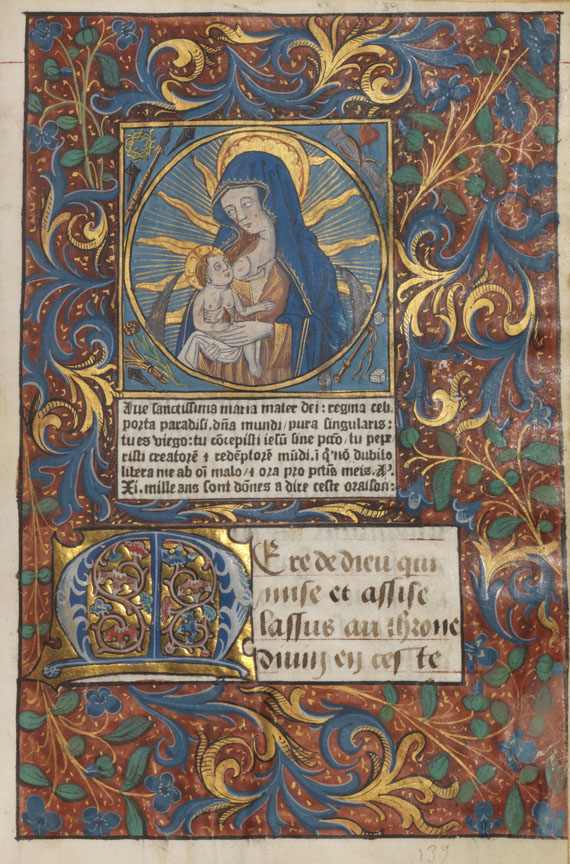 Aue sanctissima maria mater dei: regina celi.
porta paradisi. dña mundi/ pura singularis:
tu es virgo: tu cõcepisti iesũ sine pctõ/ tu pepe
risti creatorẽ ⁊ redẽptorẽ mũdi. ĩ q̃ nõ dubito
libera me ab oĩ malo/ ⁊ ora pro pctĩs meis. Añ.
Xi. mille ans sont dõnes a dire ceste oraison:
Mere de dieu qui
mise et assise
lassus au throne
diuin en ceste